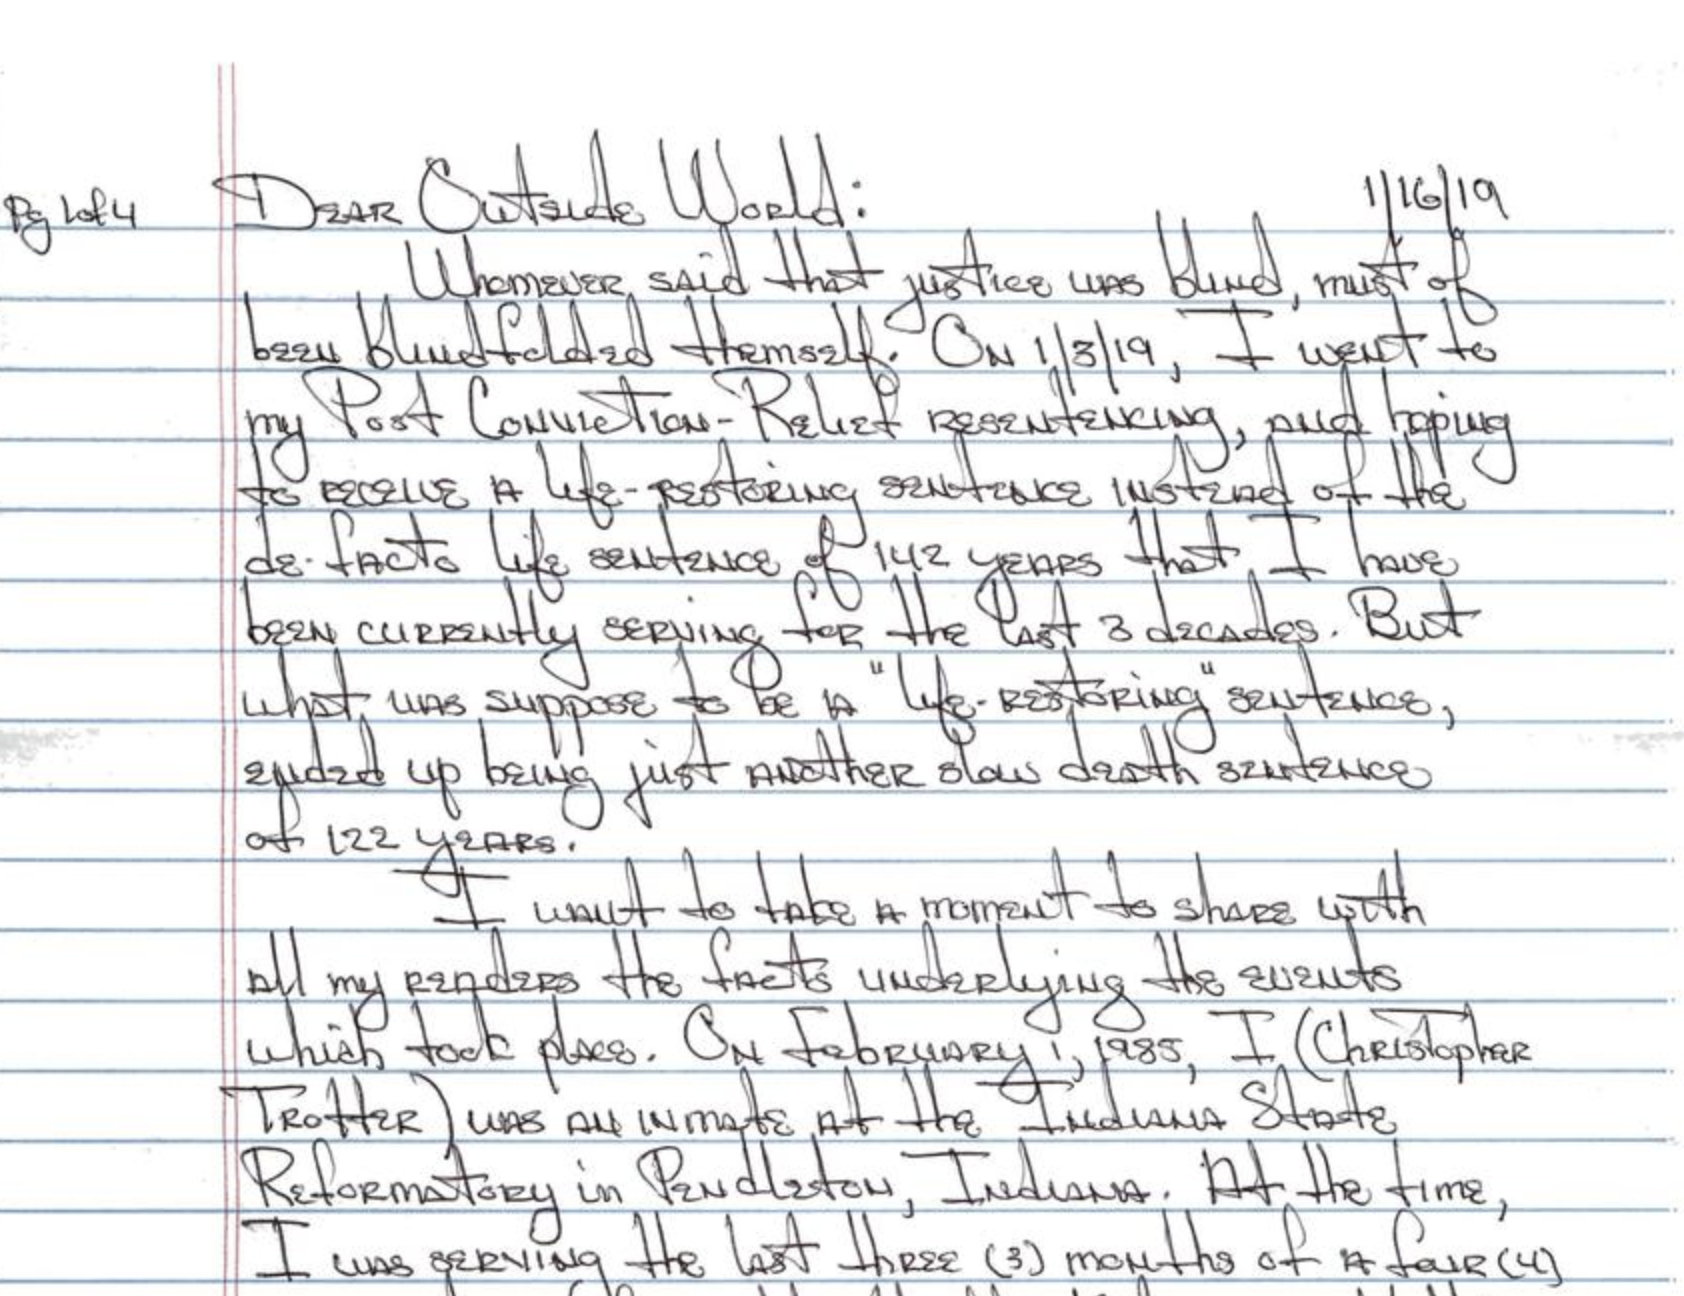 Pg 1 of 4
Dear Outside World: 1/16/19
Whomever said that justice was blind, must of
been blindfolded themself. On 1/3/19, I went to
my Post Conviction-Relief resentencing, and hoping
to receive a life-restoring sentence instead of the
de-facto life sentence of 142 years that I have
been currently serving for the last 3 decades. But
what was suppose to be a "life-restoring" sentence,
ended up being just another slow death sentence
of 122 years.
I want to take a moment to share with
all my readers the facts underlying the events
which took place. On February 1, 1985, I (Christopher
Trotter) was an inmate at the Indiana State
Reformatory in Pendleton, Indiana. At the time,
I was serving the last three (3) months of a four (4)